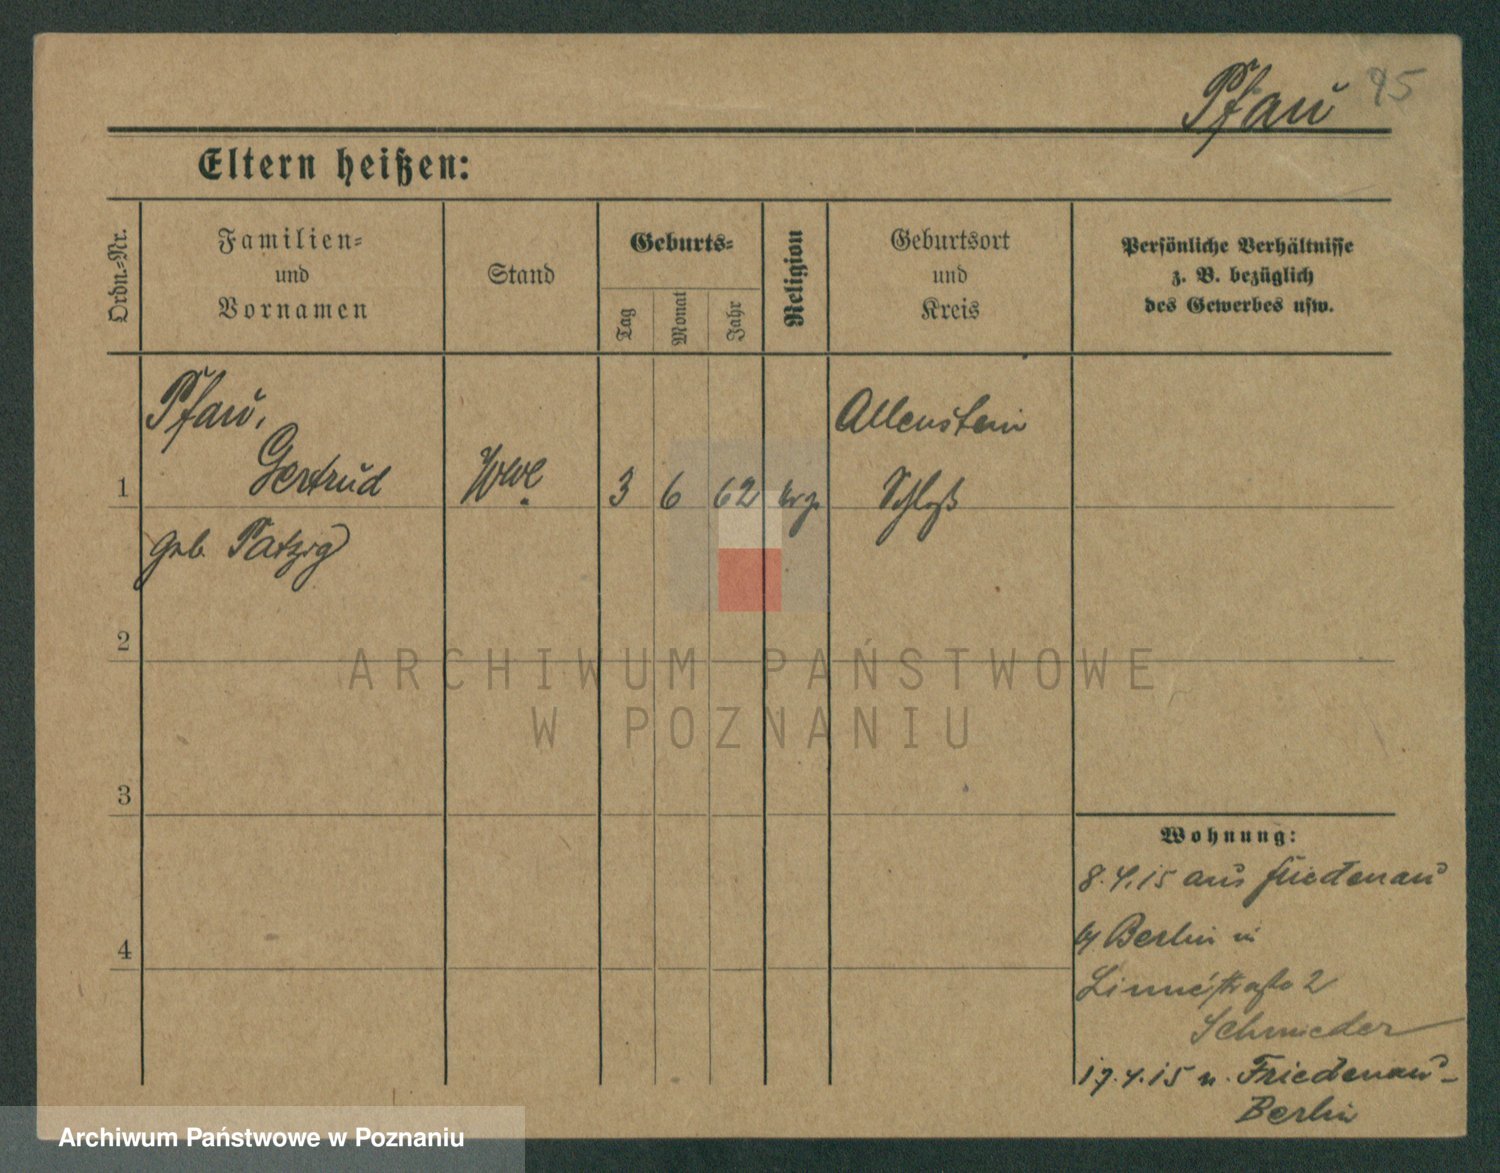 Pfau 95
Eltern heißen:
Ordn.-Nr.
Familien-
und
Vornamen
Stand
Geburts-
Tag
Monat
Jahr
Religion
Geburtsort
und
Kreis
Persönliche Verhältnisse
z. B. bezüglich
des Gewerbes usw.
Pfau,
Gertrud
1
Wwe
3 6 62
Allenstein
Schloß
geb. Patzig
2
ARCHIWUM PAŃSTWOWE
W POZNANIU
3
Wohnung:
8.4.15 aus Friedenau
b/ Berlin in
4
Linnéstraße 2
Schmieder
17.4.15 n. Friedenau-
Berlin
Archiwum Państwowe w Poznaniu